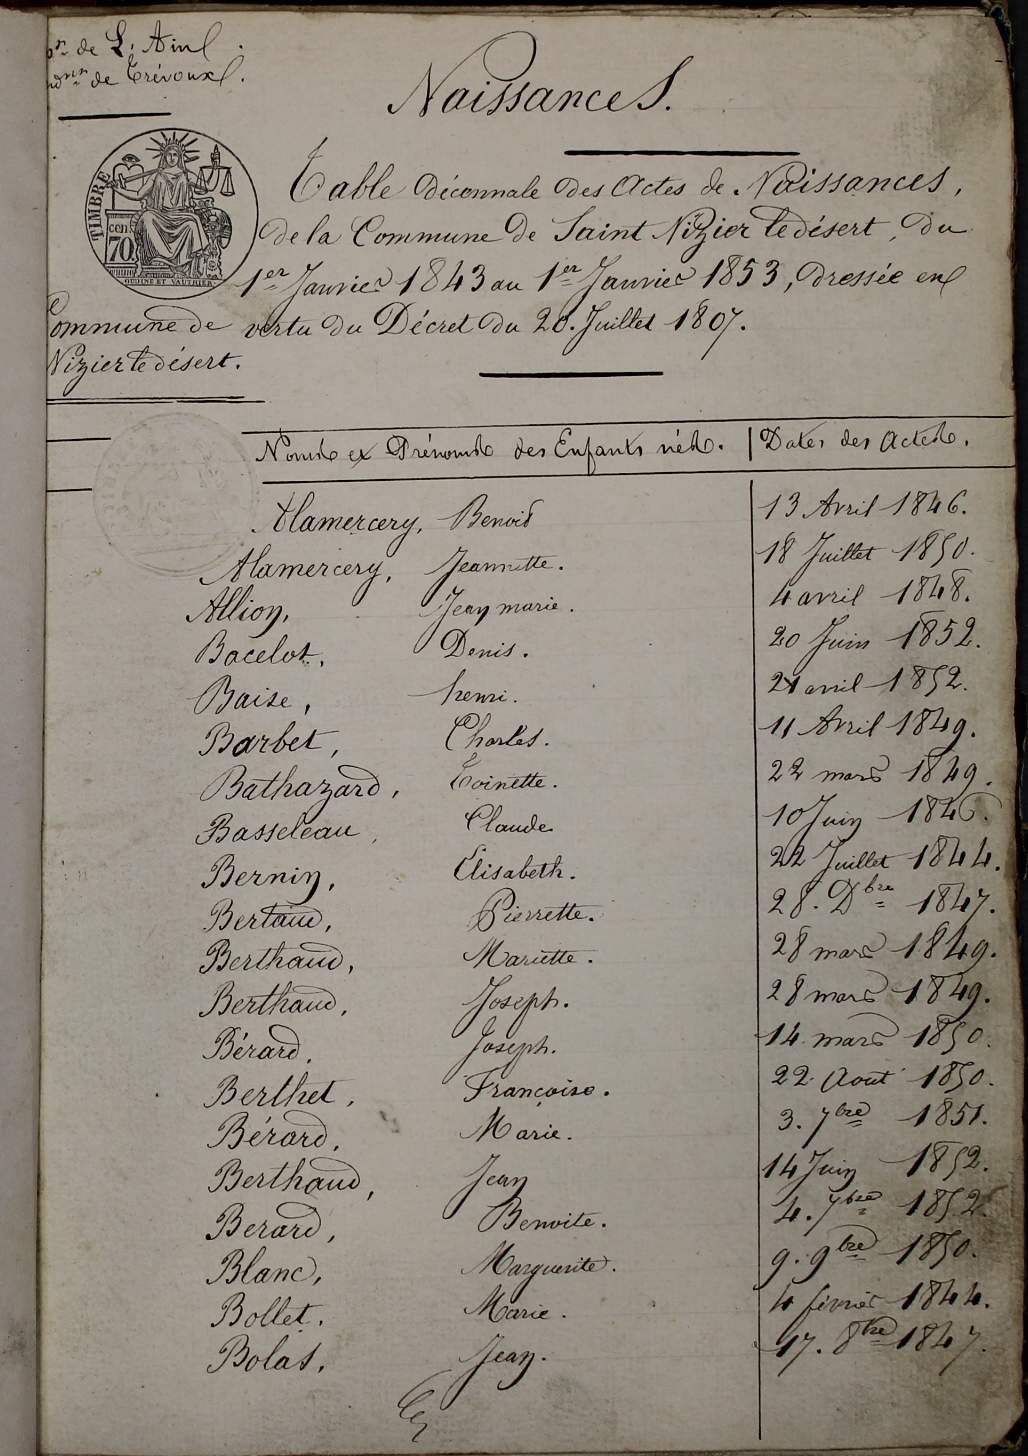 de L'Ain.
de Trévoux.
Naissances.
TIMBRE
cen
70
OUDINE ET VAUTHIER
Table décennale des Actes de Naissances,
de la Commune de Saint Nizier le désert, du
1er Janvier 1843 au 1er Janvier 1853, dressée en
Commune de
vertu du Décret du 20. Juillet 1807.
Nizier le désert.
Noms et Prénoms des Enfants nés. Dates des Actes.
Alamercery, Benoit 13 Avril 1846.
Alamercery, Jeannette. 18 Juillet 1850.
Allion, Jean marie. 4 avril 1848.
Bacelot, Denis. 20 Juin 1852.
Baise, henri. 21 avril 1852.
Barbet, Charles. 11 Avril 1849.
Bathazard, Toinette. 22 mars 1849.
Basseleau, Claude 10 Juin 1846.
Bernin, Elisabeth. 22 Juillet 1844.
Bertaud, Pierrette. 28. Dbre 1847.
Berthaud, Mariette. 28 mars 1849.
Berthaud, Joseph. 28 mars 1849.
Bérard, Joseph. 14 mars 1850.
Berthet, Françoise. 22 Aout 1850.
Bérard, Marie. 3. 7bre 1851.
Berthaud, Jean 14 Juin 1852.
Berard, Benoite. 4. 7bre 1852.
Blanc, Marguerite. 9. 9bre 1850.
Bollet, Marie. 4 février 1844.
Bolas, Jean. 17. 8bre 1847.